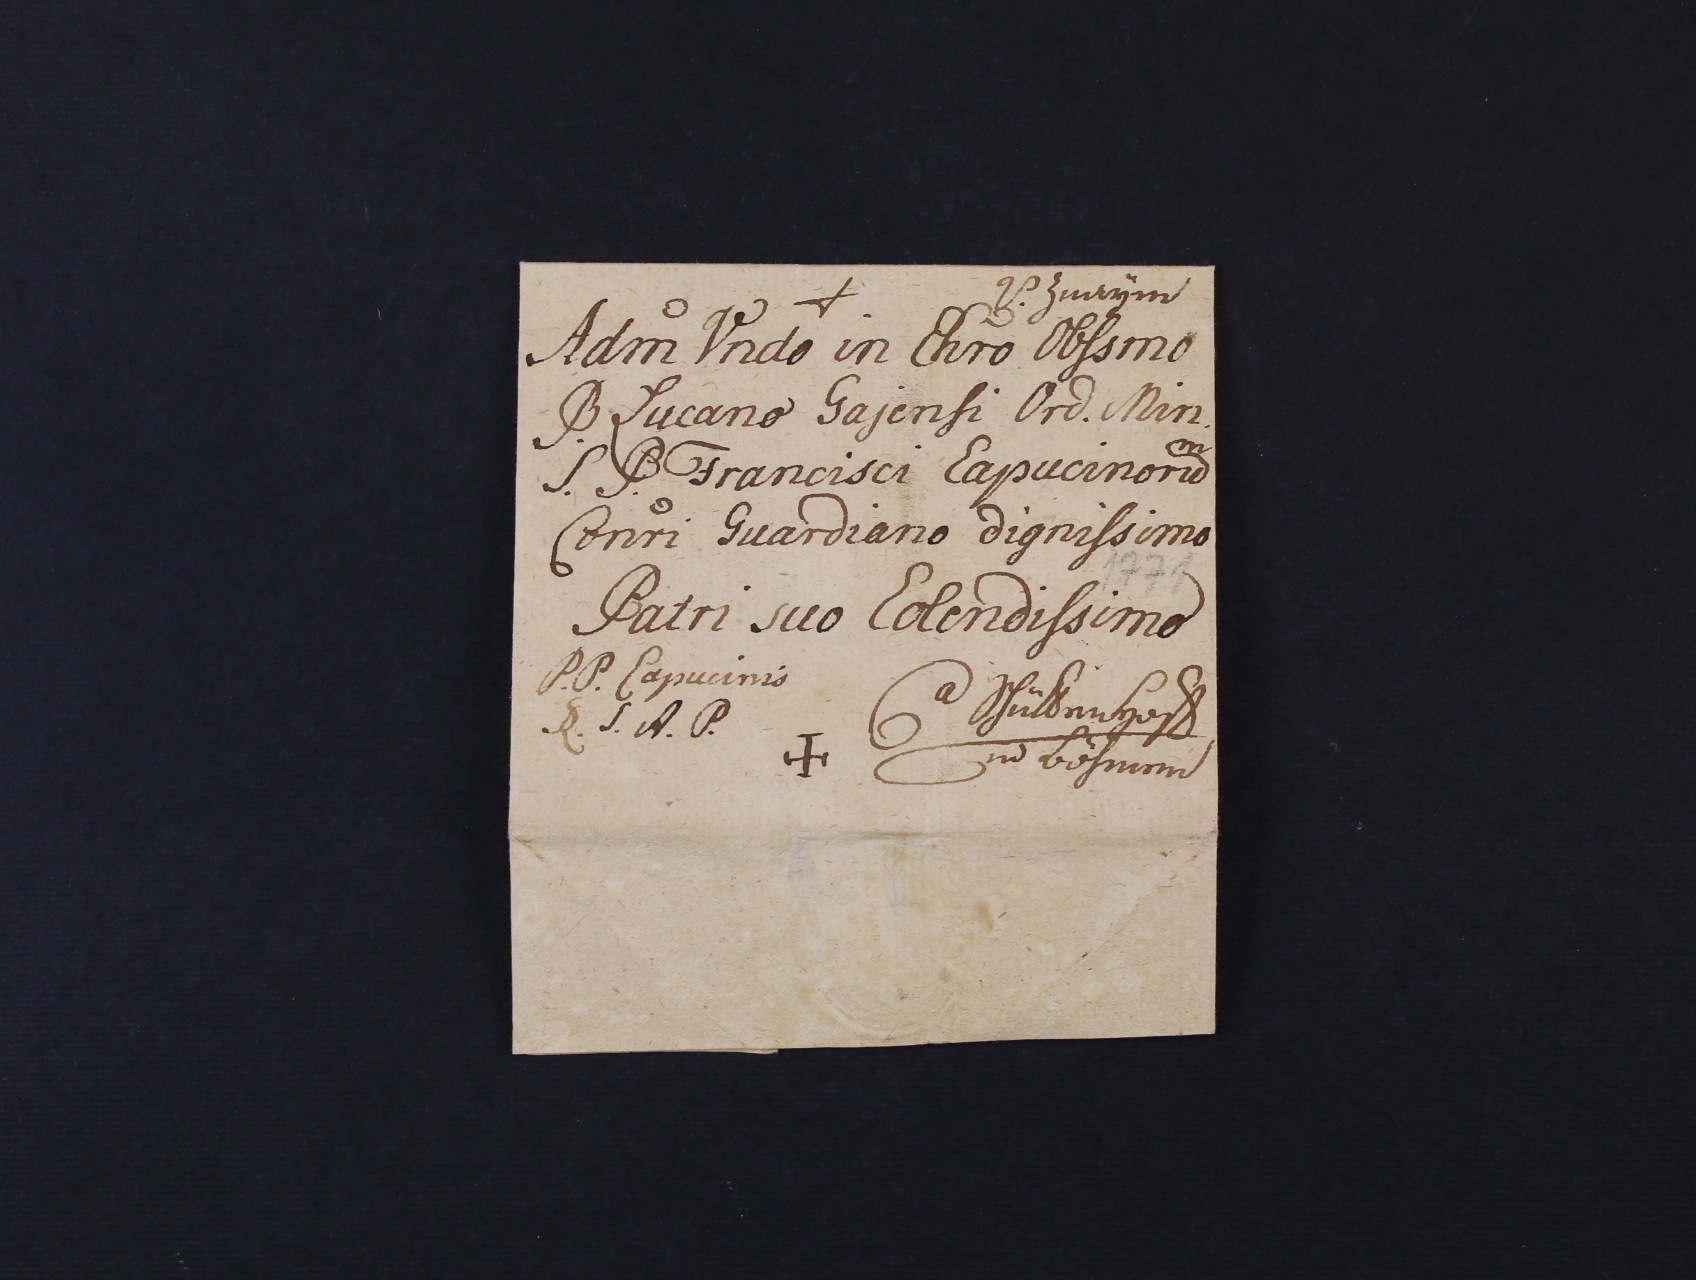 V. Znaÿm
Adm Vndo in Chro Obssmo
P. Lucano Gajensi Ord. Min.
S. P. Francisci Capucinorum
Convri Guardiano dignissimo
1771
Patri suo Colendissimo
P.P. Capucinis
L. S. A. P.
a Schüttenhoff
in Böhmen